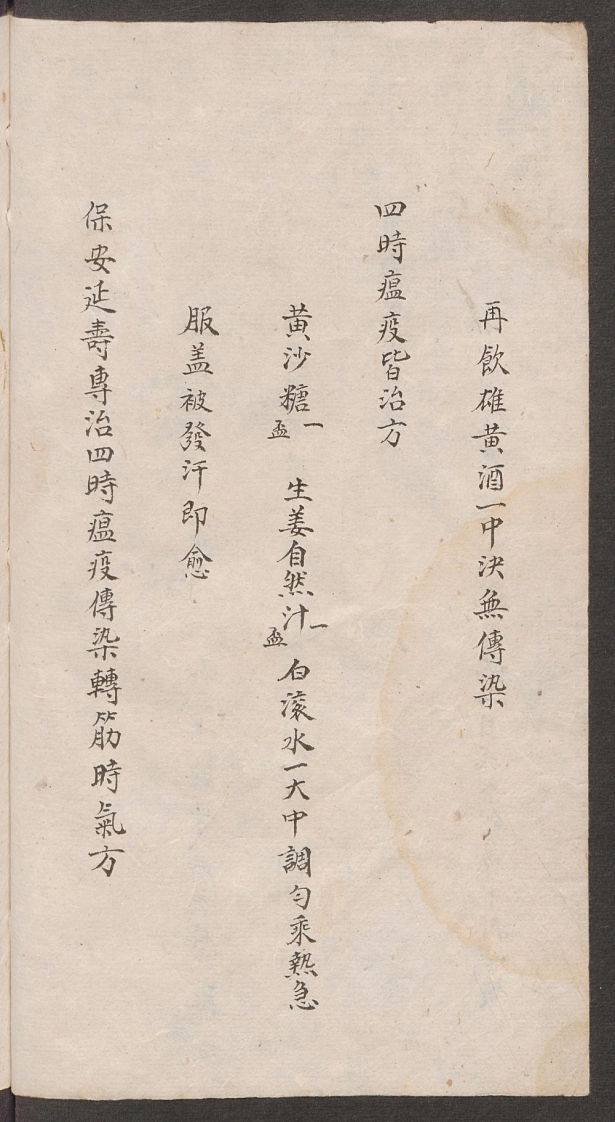 再飲雄黄酒一中決無傳染
四時瘟疫皆治方
黄沙糖一盃 生姜自然汁一盃 白滚水一大中調勻乘熱急
服盖被發汗即愈
保安延壽專治四時瘟疫傳染轉筋時氣方